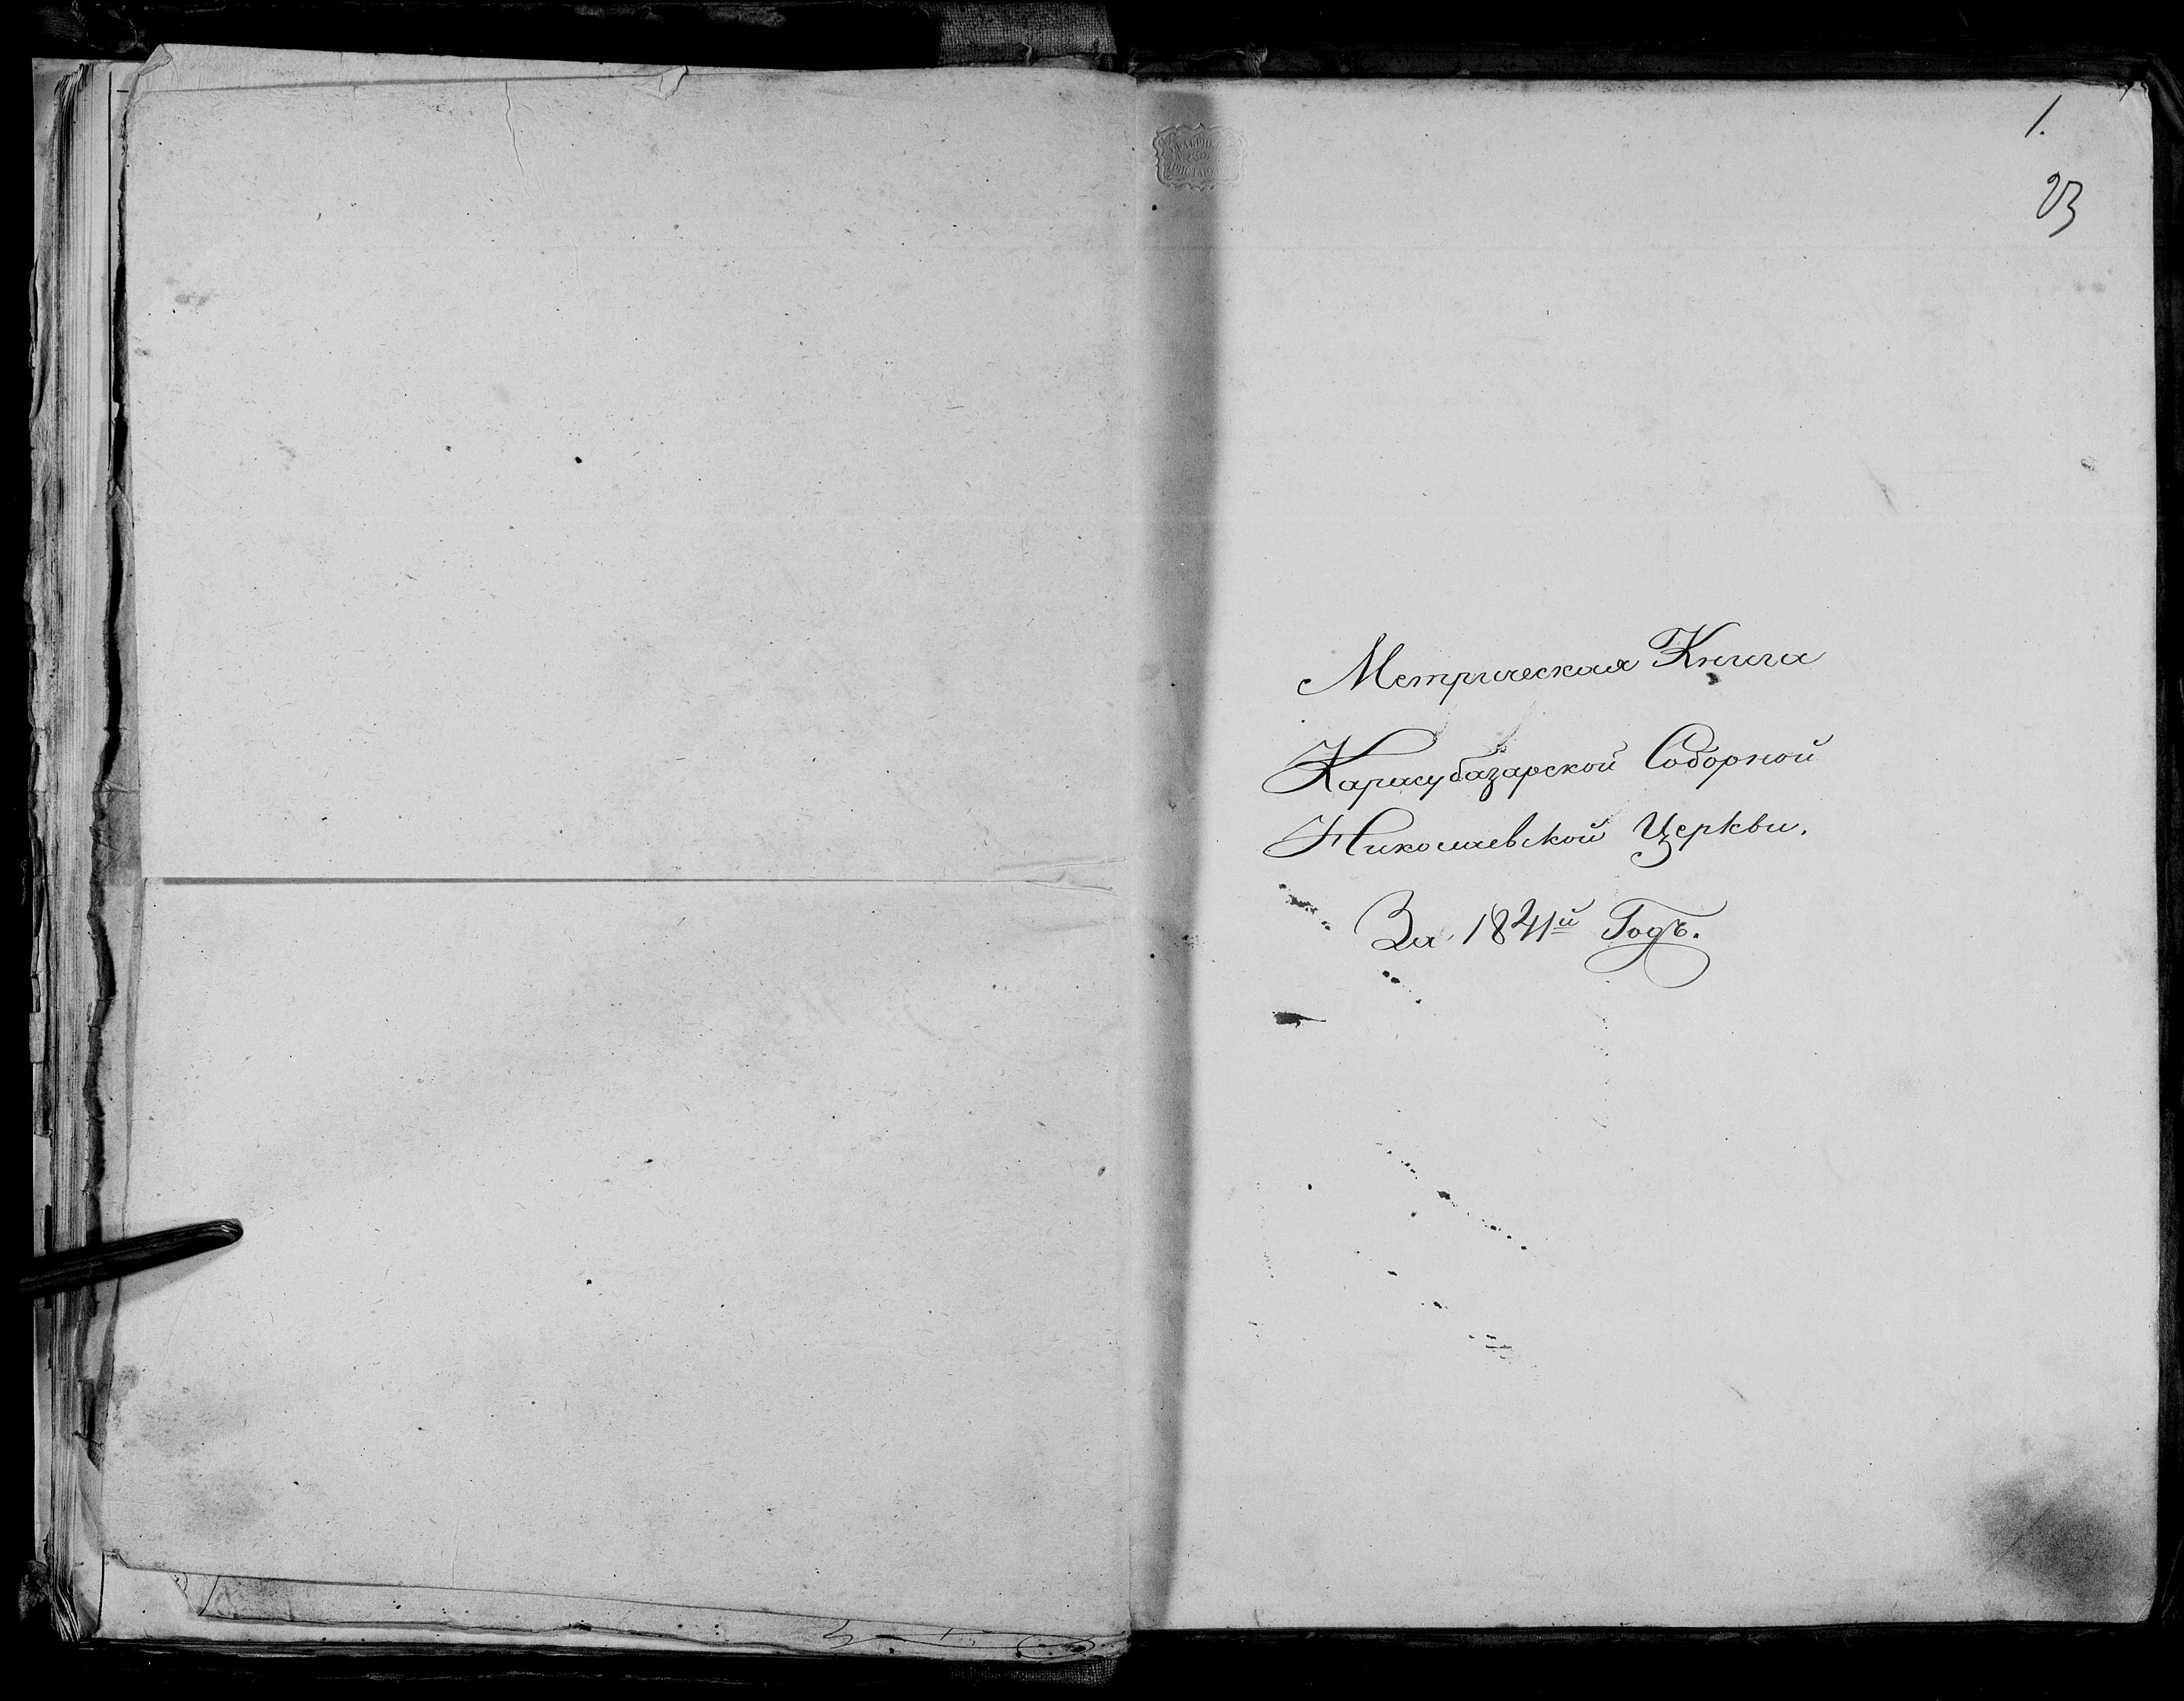 1.
23
Метрическая Книга
Карасубазарской Соборной
Николаевской Церкви.
За 1841й Годъ.